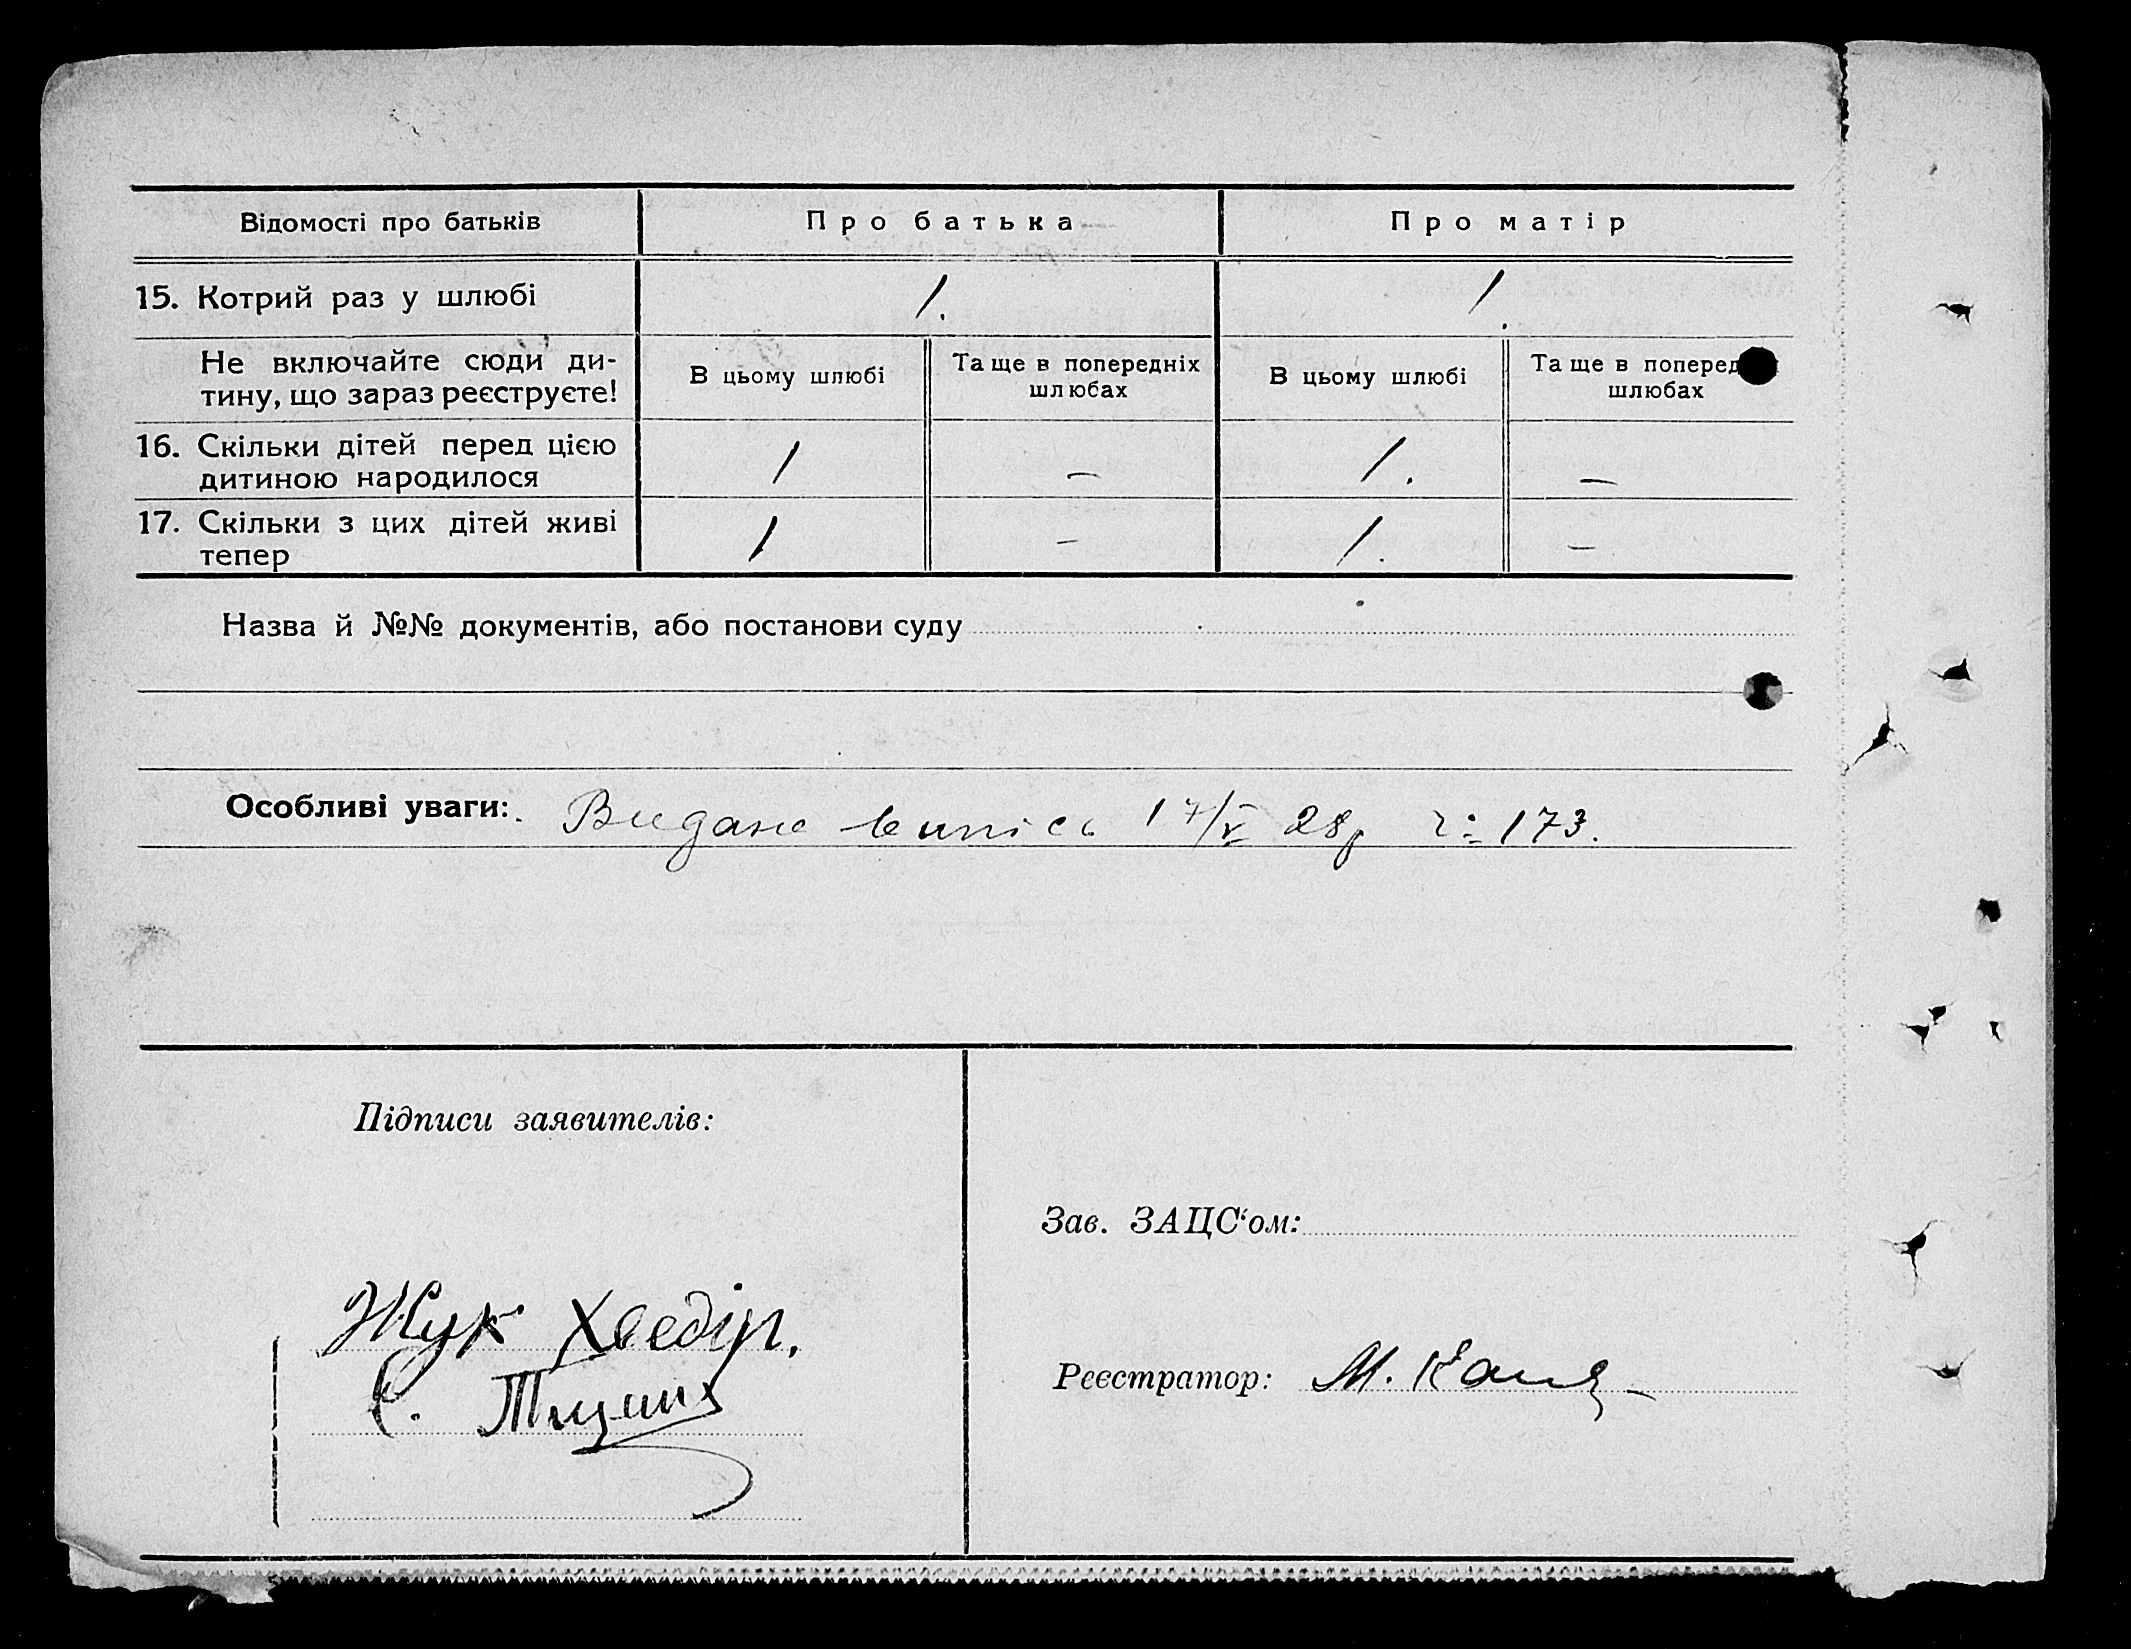 Відомості про батьків Про батька Про матір
15. Котрий раз у шлюбі 1. 1.
Не включайте сюди ди-
тину, що зараз реєструєте!
В цьому шлюбі Та ще в попередніх В цьому шлюбі Та ще в поперед
шлюбах шлюбах
16. Скільки дітей перед цією
дитиною народилося 1 – 1. –
17. Скільки з цих дітей живі
тепер 1 – 1. –
Назва й №№ документів, або постанови суду
Особливі уваги: Видано випісь 17/V 28р ч: 173.
Підписи заявителів:
Зав. ЗАЦС‘ом:
Жук Хведір.
Реєстратор: М.
Є.